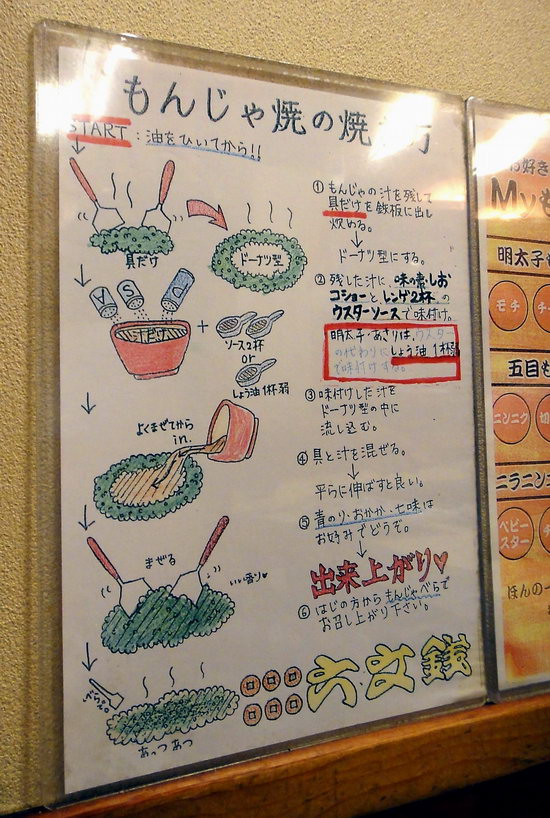 もんじゃ焼の焼
START:油をひいてから!!
具だけ
ドーナツ型
A
S
P
汁だけ
+
ソース2杯
or
しょう油1杯弱
よくまぜてから
in.
まぜる
いい香り♡
べらで
あっつあつ
① もんじゃの汁を残して
具だけを鉄板に出し
炒める。
ドーナツ型にする。
② 残した汁に、味の素しお
コショーと、レンゲ2杯の
ウスターソースで味付け。
明太子・あさりは、ウスター
の代わりにしょう油1杯弱
で味付けする。
③ 味付けした汁を
ドーナツ型の中に
流し込む。
④ 具と汁を混ぜる。
平らに伸ばすと良い。
⑤ 青のり、おかか、七味は
お好みでどうぞ。
出来上がり♡
⑥ はじの方からもんじゃべらで
お召し上がり下さい。
六文銭
お好き
Myも
明太子
モチ
五目も
ニンニク
切
ニラニン
ベビー
スター
ほんの